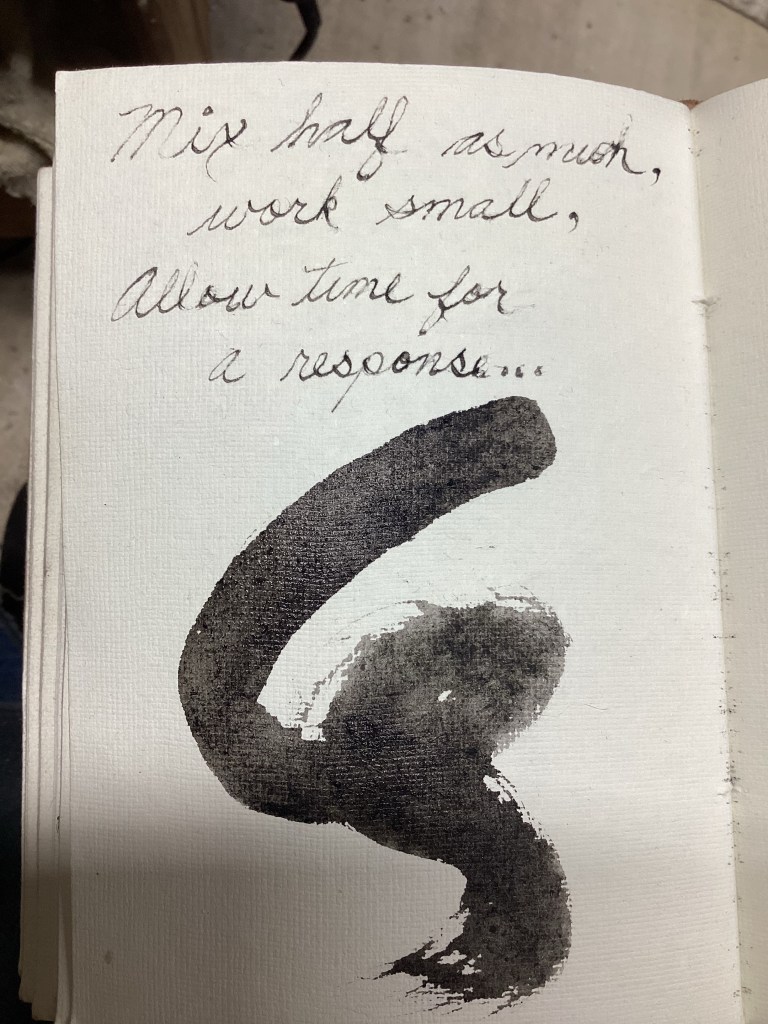 Mix half as much,
work small,
Allow time for
a response...